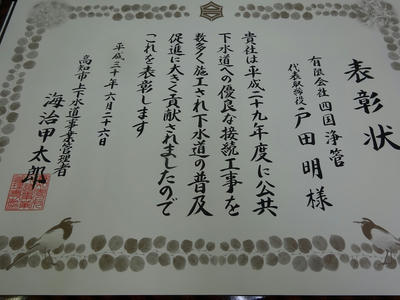 表彰状
有限会社四国浄管
代表取締役 戸田明様
貴社は平成二十九年度に公共
下水道への優良な接続工事を
数多く施工され下水道の普及
促進に大きく貢献されましたので
これを表彰します
平成三十年六月二十六日
高知市上下水道事業管理者
海治甲太郎